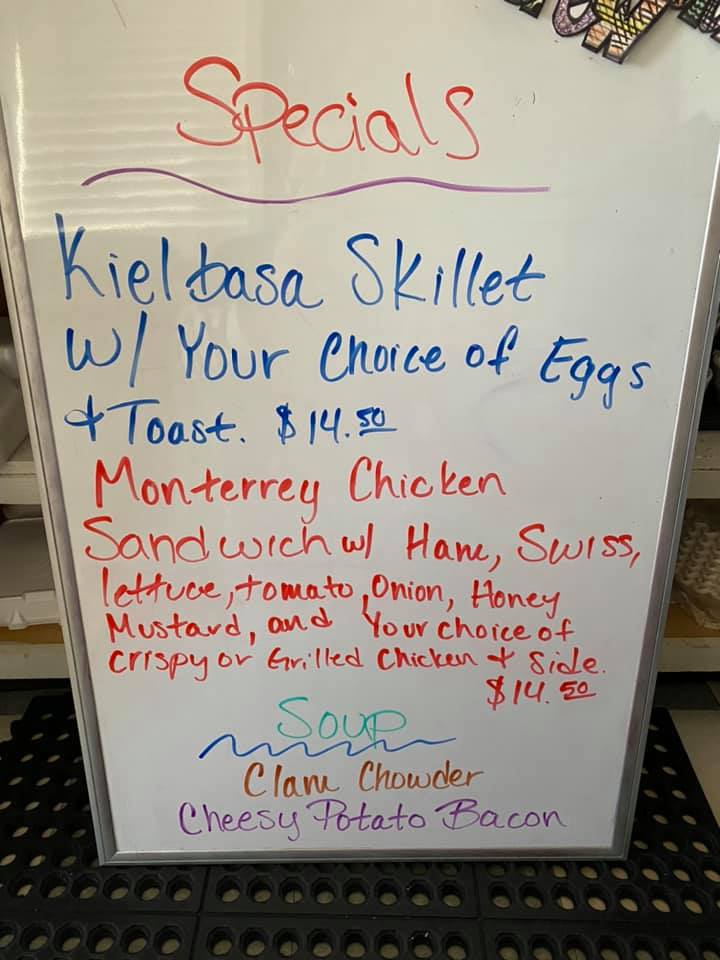 Specials
Kielbasa Skillet
w/ Your Choice of Eggs
& Toast. $14.50
Monterrey Chicken
Sandwich w/ Ham, Swiss,
lettuce, tomato, Onion, Honey
Mustard, and Your choice of
crispy or Grilled Chicken & Side.
$14.50
Soup
Clam Chowder
Cheesy Potato Bacon